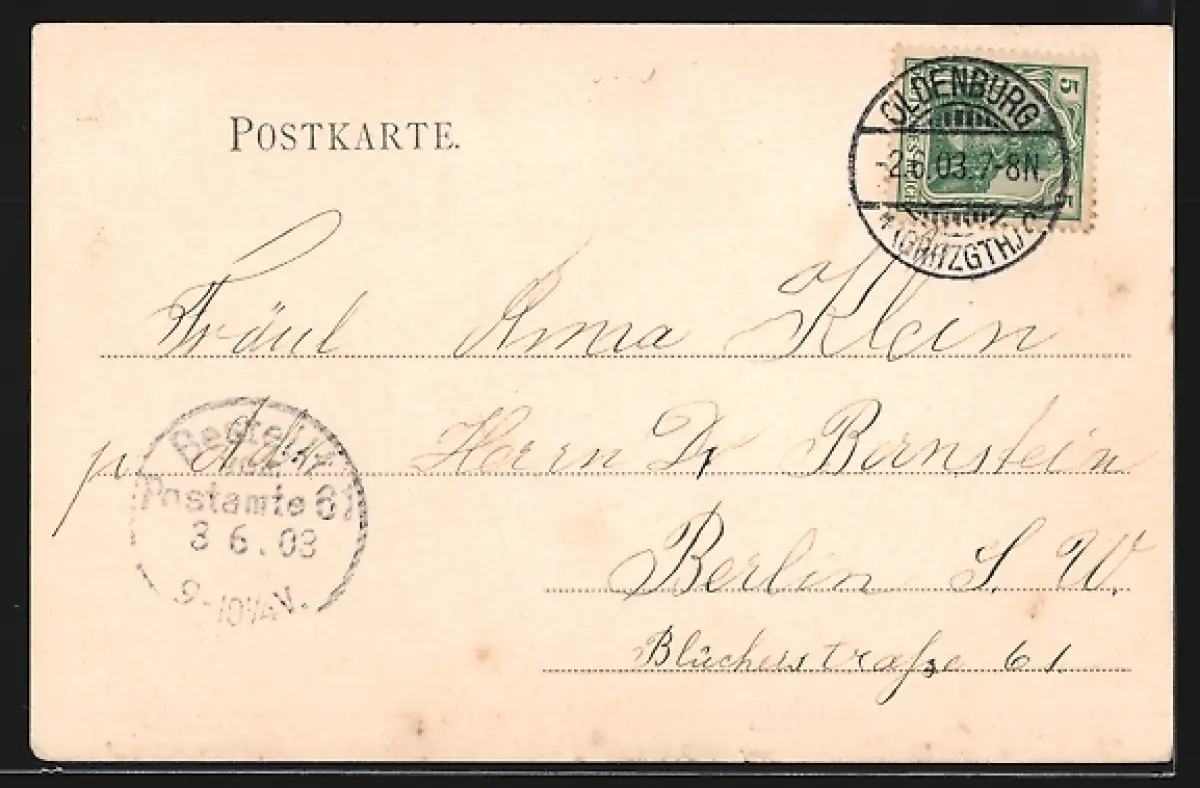 POSTKARTE.
5
OLDENBURG
-2.6.03.7-8N.
*(GRHZGTH)C
Fräul Anna Klein
pr. Adr Herrn Dr Bernstein
Bestellt
Postamte 61
3 6.03
9-10¼V.
Berlin S. W.
Blücherstraße 61.